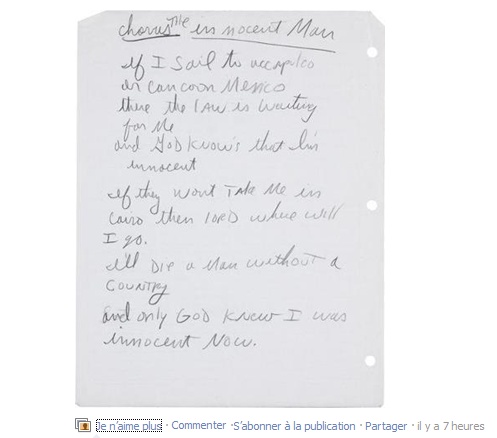 chorus Tile innocent Man
if I Sail to accapalco
or can coon Mexico
there the LAW is waiting
for Me
and GoD know's that I'm
innocent
if they wont Take Me in
Cairo then lord where will
I go.
i'll Die a Man without a
COUNTRY
and only GOD knew I was
innocent Now.
Je n'aime plus · Commenter · S'abonner à la publication · Partager · il y a 7 heures